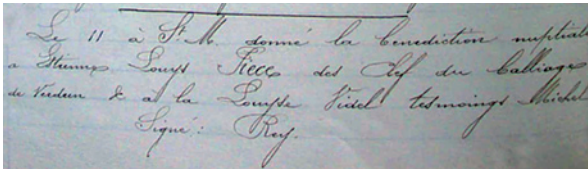 Le 11 à St M. donné la benediction nuptiale
a Etienne Louys Piece des Clef du balliage
de Verdun & à la Louyse Videl tesmoings Michel
Signé: Rey.